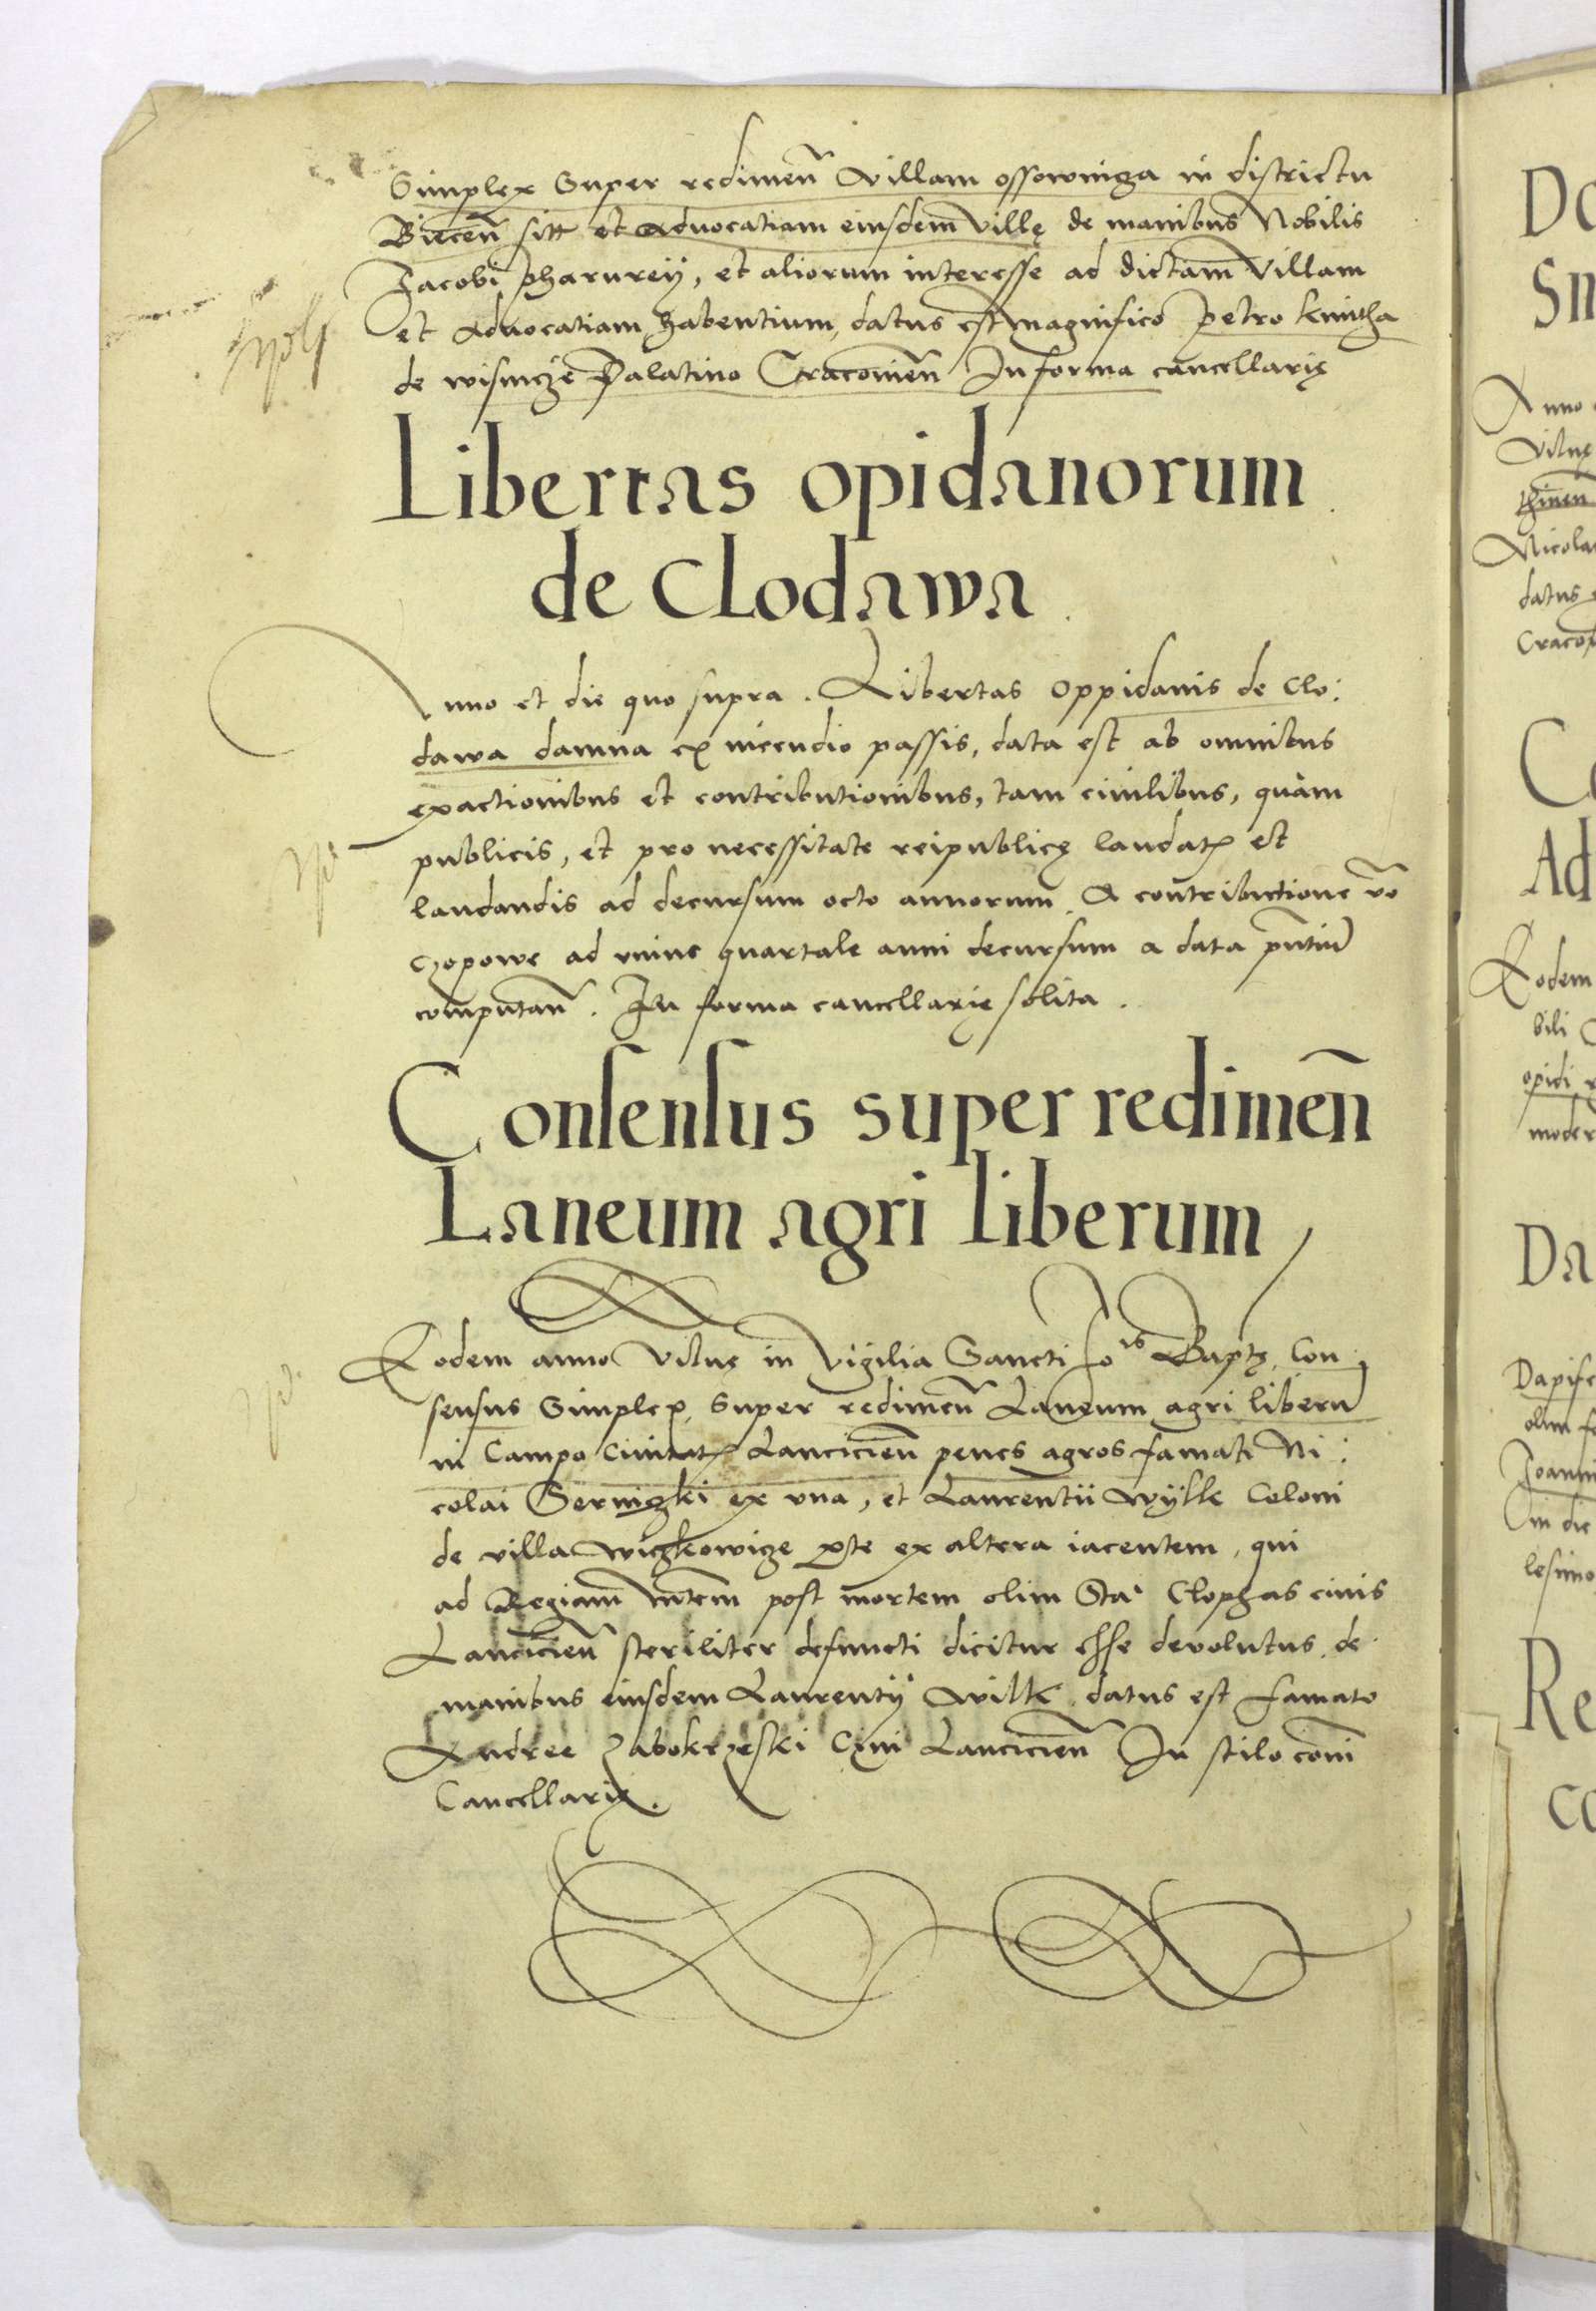 Simplex Super redimen̄ Villam ossownicza in districtu
Biecen̄ sitt et Advocatiam eiusdem Villę de manibus Nobilis
Jacobi pharurey, et aliorum interesse ad dictam Villam
et Advocatiam habentium, datus est magnifico petro kmitha
de wisnicze Palatino Cracovien̄ In forma cancellarię
Libertas opidanorum
de Clodawa
Anno et die quo supra. Libertas Oppidanis de Clo:
dawa damna ex incendio passis, data est ab omnibus
exactionibus et contributionibus, tam civilibus, quàm
publicis, et pro necessitate reipublicę laudatꝫ et
laudandis ad decursum octo annorum. A contributione v̄o
czopowe ad unius quartale anni decursum a data pn̄tiū
computan̄. In forma cancellarię solita.
Consensus super redimen̄
Laneum agri liberum
Eodem anno Vilnę in Vigilia Sancti Jois Baptę, Con:
sensus Simplex, Super redimen̄ Laneum agri liberū
in Campo Civitatꝫ Lancicien̄ penes agros famati Ni:
colai Serniczki ex una, et Laurentii Wylk Coloni
de villa Wiczkowicze pꝛte ex altera iacentem, qui
ad Regiam Mtem post mortem olim Sta: Clophas civis
Lancicien̄ steriliter defuncti dicitur esse devolutus, de
manibus eiusdem Laurentÿ Wilk, datus est famato
Andree Zabokrzeski Civi Lancicien̄ In stilo com̄i
Cancellarię.
Do
Sm
Anno
Vilnę
Nicola
datus
Craco
Co
Ad
Eodem
bili
opidi
moder
Da
Dapife
olim fe
Joanni
in die
lesimo
Re
co